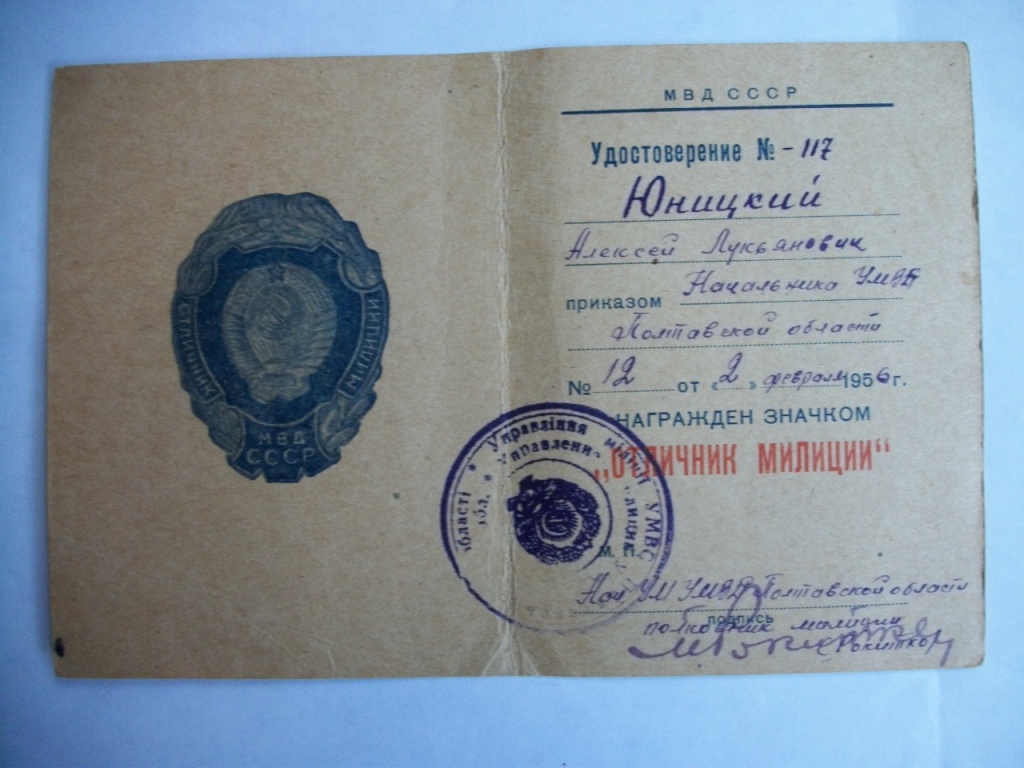 ОТЛИЧНИК МИЛИЦИИ
МВД
СССР
МВД СССР
Удостоверение № - 117
Юницкий
Алексей Лукьянович
приказом Начальника УМВД
Полтавской области
№ 12 от «2» февраля 1956 г.
НАГРАЖДЕН ЗНАЧКОМ
„ОТЛИЧНИК МИЛИЦИИ“
Управління міліції УМВС
Управление
області
М. П.
Нач УМ УМВД Полтавской области
подпись
полковник милиции